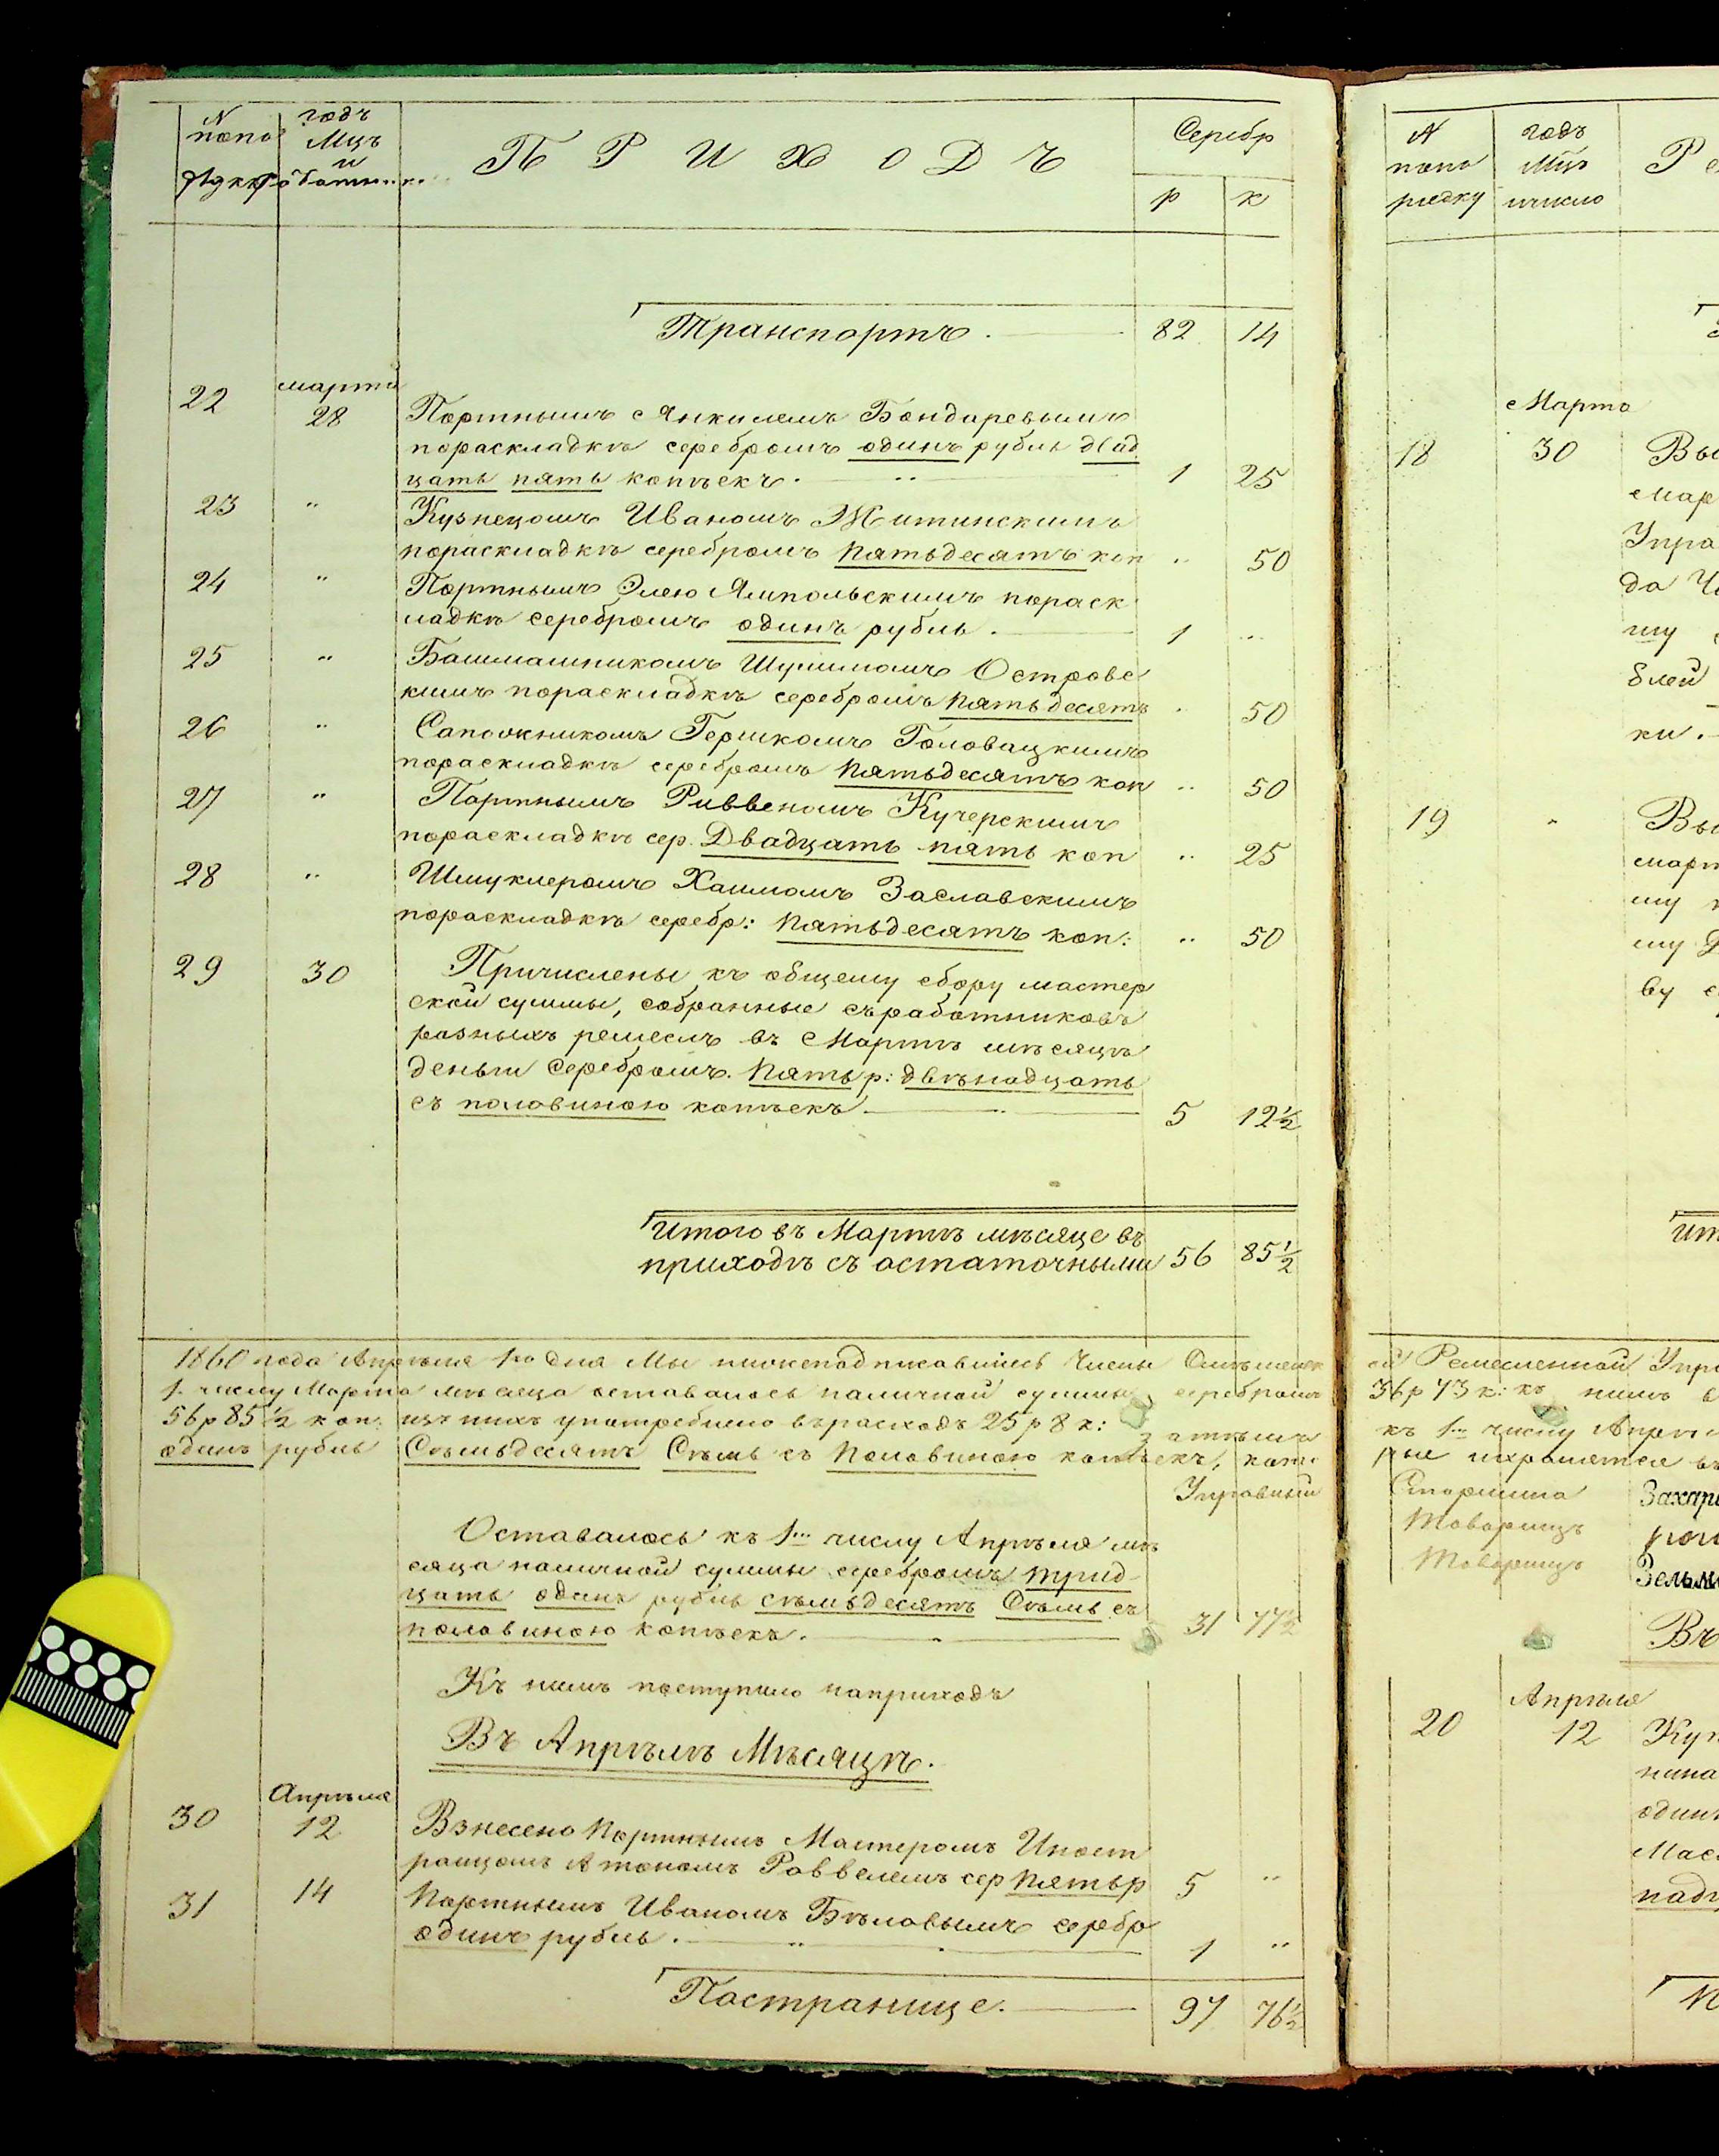 N годъ
попо Мцъ
и
ПРИХОДЪ
Серебр
р к
Транспортъ. 82 14
22 марта 28 Портнымъ Янкилемъ Бондаревымъ
пораскладкѣ серебромъ одинъ рубль двад
цать пять копѣекъ. 1 25
23 " Кузнецомъ Иваномъ Житинскимъ
пораскладкѣ серебромъ пятьдесятъ коп " 50
24 " Портнымъ Элею Ямпольскимъ пораск
ладкѣ серебромъ одинъ рубль. 1 "
25 " Башмашникомъ Шулимомъ Островс
кимъ пораскладкѣ серебромъ пятьдесятъ " 50
26 " Сапожникомъ Гершкомъ Головацкимъ
пораскладкѣ серебромъ пятьдесятъ коп " 50
27 " Портнымъ Рувеномъ Кучерскимъ
пораскладкѣ сер. Двадцать пять коп " 25
28 " Шмуклеромъ Хаимомъ Заславскимъ
пораскладкѣ серебр: пятьдесятъ коп: " 50
29 30 Причислены къ общему сбору мастер
ской суммы, собранные съработниковъ
разныхъ ремеслъ въ Мартѣ мѣсяцѣ
деньги серебромъ. Пять р: двѣнадцать
съ половиною копѣекъ. 5 12½
Итого въ Мартѣ мѣсяце въ
приходѣ съ остаточными 56 85½
1860 года Апрѣля 1го дня Мы нижеподписавшіесъ Члены
1. числу Марта мѣсяца оставалось наличной суммы серебромъ
56 р 85½ коп. изъ нихъ употреблено върасходъ 25 р 8 к: затѣмъ
одинъ рубль Сѣмьдесятъ Сѣмь съ Половиною копѣекъ, кото
Управный
Оставалось къ 1му числу Апрѣля мѣ
сяца наличной суммы серебромъ трид-
цать одинъ рубль сѣмьдесятъ Сѣмь съ
половиною копѣекъ. 31 77½
Къ нимъ поступило наприходъ
Въ Апрѣлѣ Мѣсяцѣ.
30 Апрѣля 12 Взнесено Портнымъ Мастеромъ Иност
ранцомъ Антономъ сер Пять р 5 "
31 14 Портнымъ Иваномъ Бѣловымъ серебр
одинъ рубль. 1 "
Пострянице. 97 76½
N годъ
попо Мцъ
рядку ичисло
Марта
18 30
Упра
ки.
19 "
ит
ой Ремесленной Упра
36 р 73 к: къ нимъ в
къ 1му числу Апрѣ
рые хранятся въ
Старшина Захар
Товарищъ
Товарищъ Зельм
Въ
Апрѣля
20 12 Куп
один